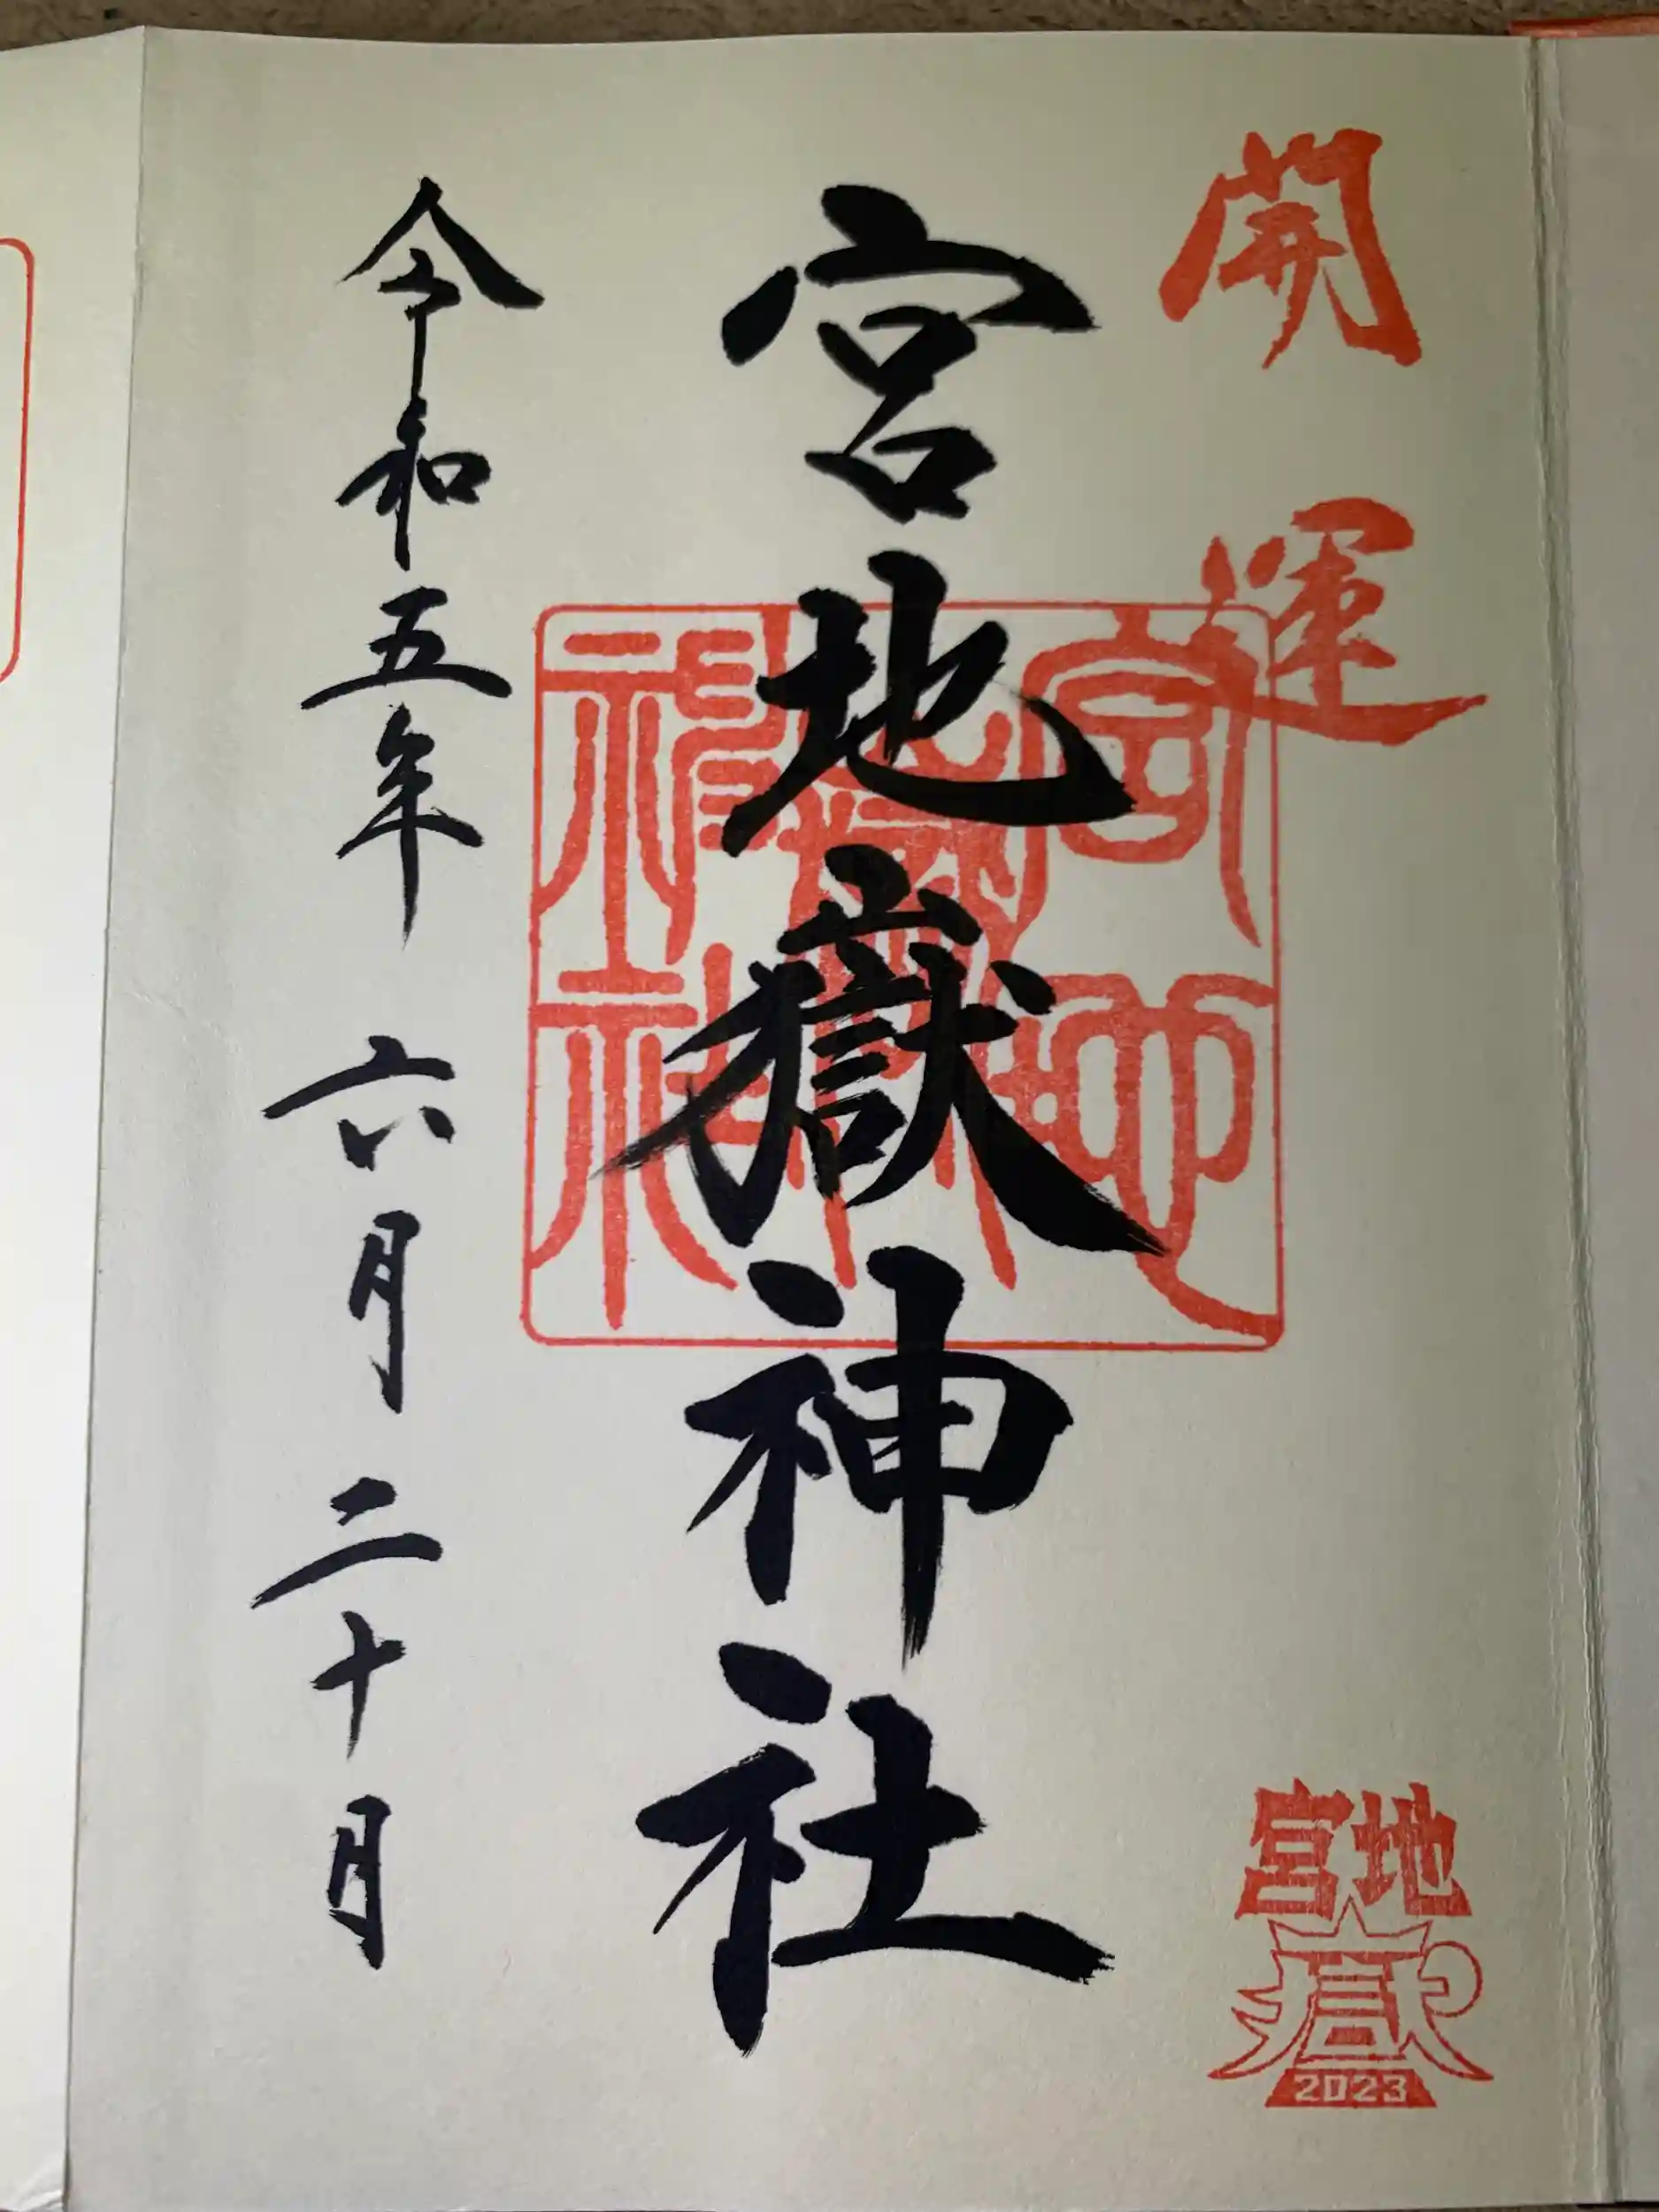 開運
宮地嶽神社
令和五年 六月 二十日
宮地
嶽
神社
宮地
嶽
2023